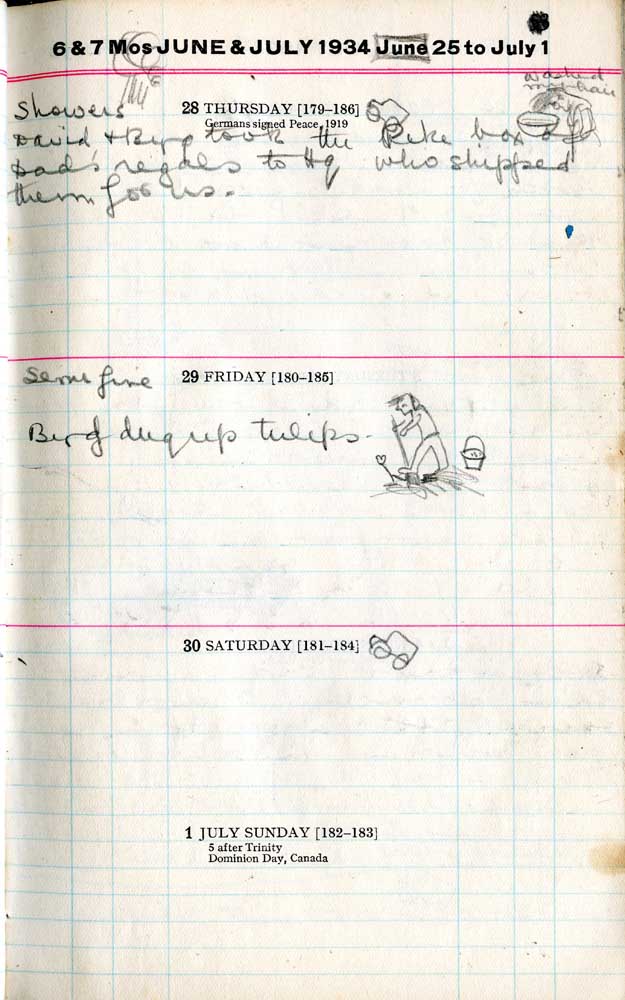 6 & 7 Mos JUNE & JULY 1934 June 25 to July 1
washed
my hair
Showers 28 THURSDAY [179–186]
Germans signed Peace, 1919
David & Byrg took the Pike box of
Dad's regals to Hq who shipped
them for us.
Semi fine 29 FRIDAY [180–185]
Byrg dug up tulips.
30 SATURDAY [181–184]
1 JULY SUNDAY [182–183]
5 after Trinity
Dominion Day, Canada